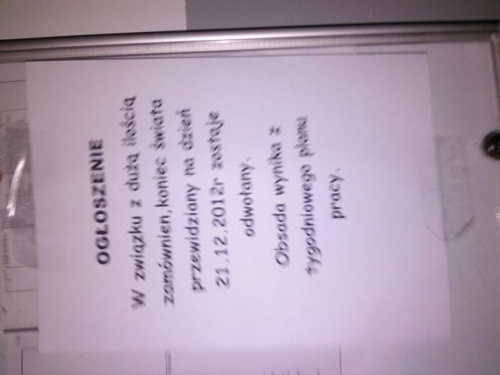 OGŁOSZENIE
W związku z dużą ilością
zamównien,koniec świata
przewidziany na dzień
21.12.2012r zostaje
odwołany.
Obsada wynika z
tygodniowego planu
pracy.